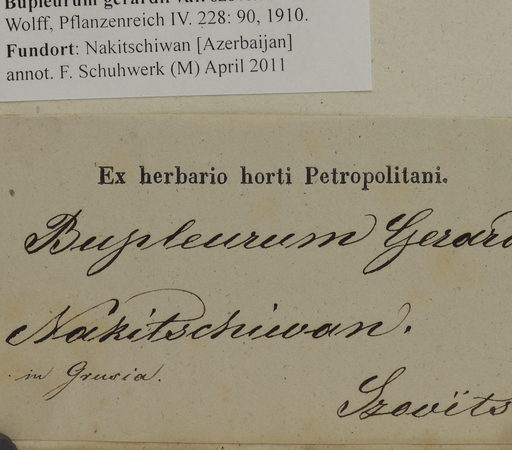 Bupleurum gerardii
Wolff, Pflanzenreich IV. 228: 90, 1910.
Fundort: Nakitschiwan [Azerbaijan]
annot. F. Schuhwerk (M) April 2011
Ex herbario horti Petropolitani.
Bupleurum Gerard
Nakitschiwan.
in Grusia.
Szovïts